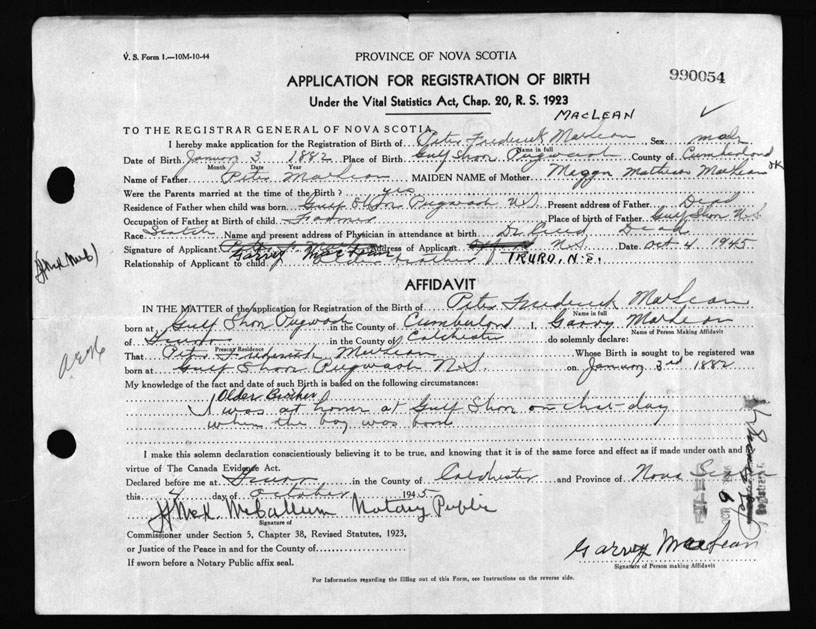 V. S. Form 1.—10M-10-44
PROVINCE OF NOVA SCOTIA
990054
APPLICATION FOR REGISTRATION OF BIRTH
Under the Vital Statistics Act, Chap. 20, R. S. 1923
MACLEAN
TO THE REGISTRAR GENERAL OF NOVA SCOTIA
I hereby make application for the Registration of Birth of Peter Frederick MacLean Sex male
Name in full
Date of Birth January 3 1882 Place of Birth Gulf Shore Pugwash County of Cumberland
Month Date Year
Name of Father Peter MacLean MAIDEN NAME of Mother Maggie Matheson MacLean
Were the Parents married at the time of the Birth? yes
Residence of Father when child was born Gulf Shore Pugwash N.S. Present address of Father Dead
Occupation of Father at Birth of child Farmer Place of birth of Father Gulf Shore N.S.
Race Scotch Name and present address of Physician in attendance at birth Dr. Creed Dead
Signature of Applicant Address of Applicant N.S. Date Oct 4 1945
Garvey MacLean
Relationship of Applicant to child brother TRURO, N.S.
AFFIDAVIT
IN THE MATTER of the application for Registration of the Birth of Peter Frederick MacLean
Name in full
born at Gulf Shore Pugwash in the County of Cumberland I, Garvey MacLean
Name of Person Making Affidavit
of Truro in the County of Colchester do solemnly declare:
Present Residence
That Peter Frederick MacLean Whose Birth is sought to be registered was
born at Gulf Shore Pugwash N.S. on January 3rd 1882
My knowledge of the fact and date of such Birth is based on the following circumstances:
Older Brother
I was at home at Gulf Shore on that day
when the boy was born
I make this solemn declaration conscientiously believing it to be true, and knowing that it is of the same force and effect as if made under oath and by
virtue of The Canada Evidence Act.
Declared before me at Truro in the County of Colchester and Province of Nova Scotia
this 4 day of October 1945
McCallum Notary Public
Signature of
Commissioner under Section 5, Chapter 38, Revised Statutes, 1923,
or Justice of the Peace in and for the County of
If sworn before a Notary Public affix seal.
Garvey MacLean
Signature of Person making Affidavit
For Information regarding the filling out of this Form, see Instructions on the reverse side.
Registrar